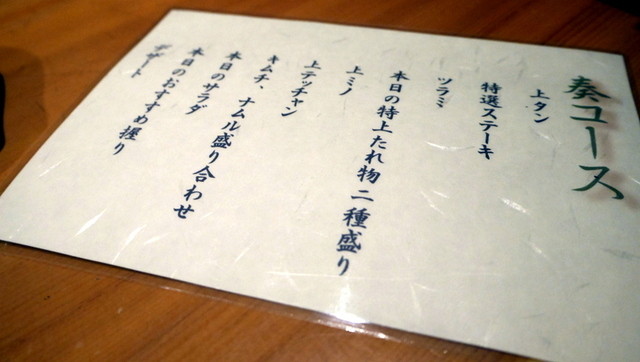 奏コース
上タン
特選ステーキ
ツラミ
本日の特上たれ物二種盛り
上ミノ
上テッチャン
キムチ、ナムル盛り合わせ
本日のサラダ
本日のおすすめ握り
デザート